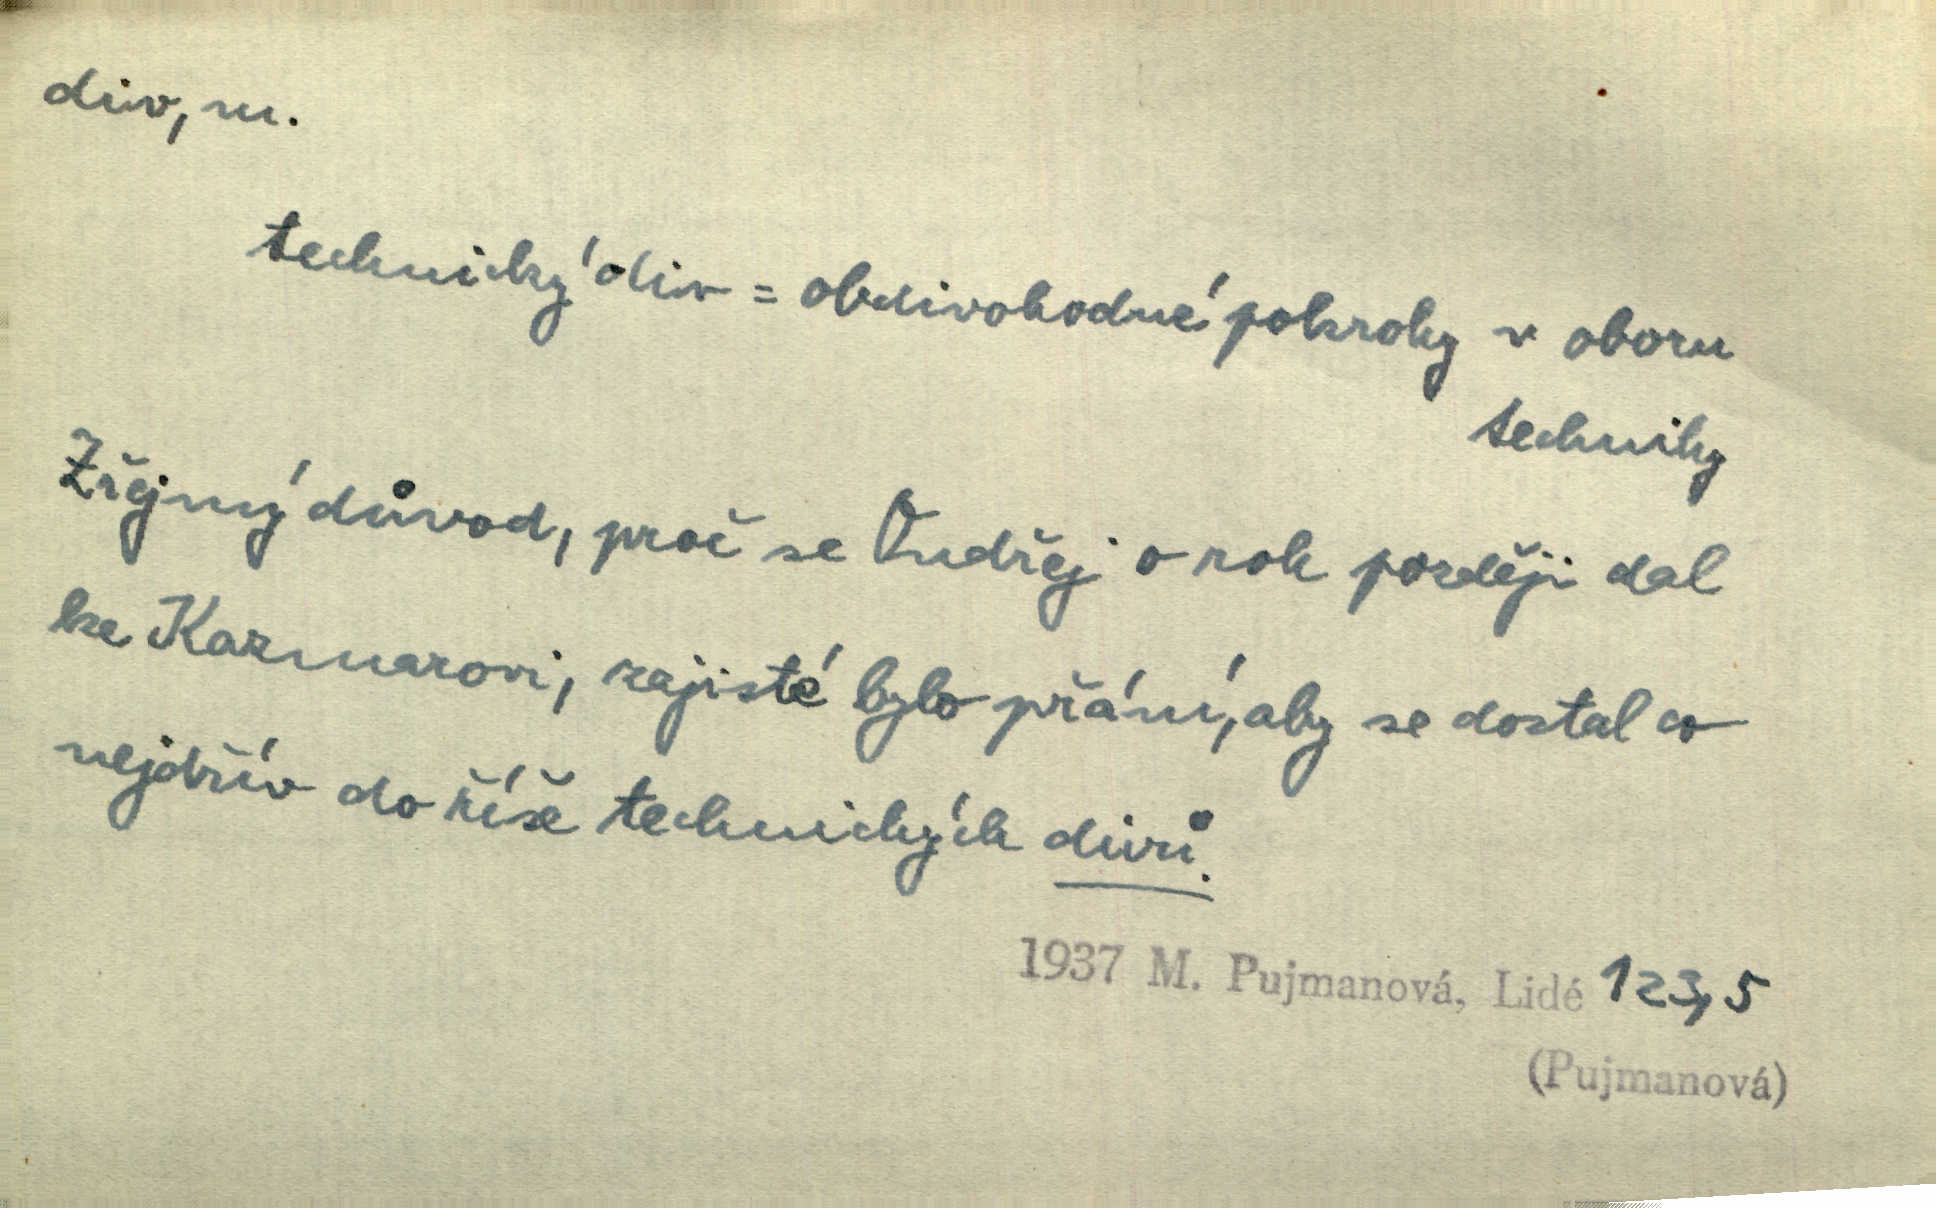 div, m.
technický div = obdivohodné pokroky v oboru
techniky
Zřejmý důvod, proč se Ondřej o rok později dal
ke Kazmarovi, zajisté bylo přání, aby se dostal co
nejdřív do říše technických divů.
1937 M. Pujmanová, Lidé 123,5
(Pujmanová)